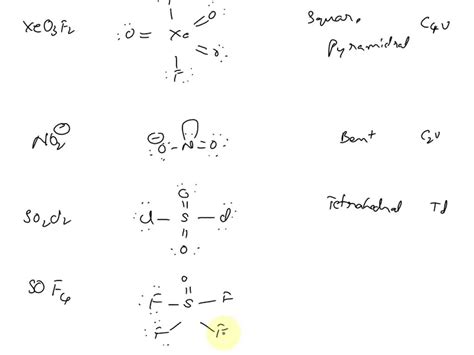 XeO3F2 O = Xe O Squar. C4v
= O: Pyramidal
F
NO2⊖ ⊖ :O – N = O: Bent C2v
O
SO2Cl2 :Cl – S – Cl: Tetrahedral Td
:O:
O
SOF4 :F – S – F
:F F